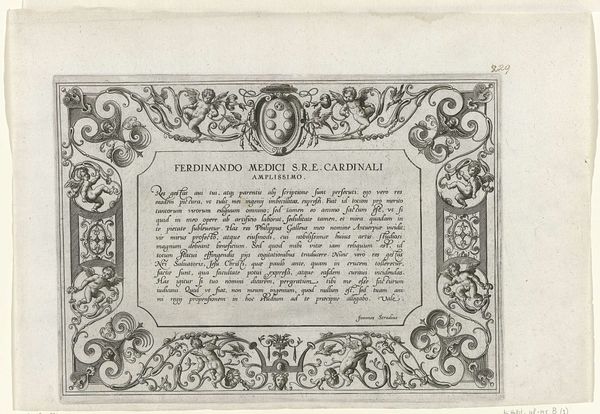 329
FERDINANDO MEDICI S.R.E. CARDINALI
AMPLISSIMO.
Res gestas aui tui, atq; parentis alij scriptione sunt persecuti, ego vero res
easdem pictura, vt tulit mei ingenij imbecillitas, expressi. Fuit id totum pro merito
tantorum virorum exiguum omnino, sed tamen eo animo factum est, vt si
quid in meo opere ab artificio laborat, sedulitate tamen, et mira quadam in
te pietate subleuetur. Has res Philippus Gallæus meo nomine Antuerpiæ incidit,
vir mirus profecto, atque eiusmodi, cui nobilissimæ huius artis studiosi
magnum debeant beneficium. Sed quod mihi vitæ iam reliquum est, id
totum statui effingendis pijs cogitationibus traducere. Nunc vero res gestas
Nri Saluatoris, Iesu Christi, quæ paulo ante, quam in crucem tolleretur,
factæ sunt, qua facultate potui expressi, atque easdem curaui incidendas.
Has igitur si tuo nomini dicarem, pergratum tibi me esse facturum
iudicaui. Quod vt fiat, non meum ingenium, quod nullum est, sed tuam ani
mi regij propensionem in hoc studium ad te præcipue allegabo. Vale.
Joannes Stradius